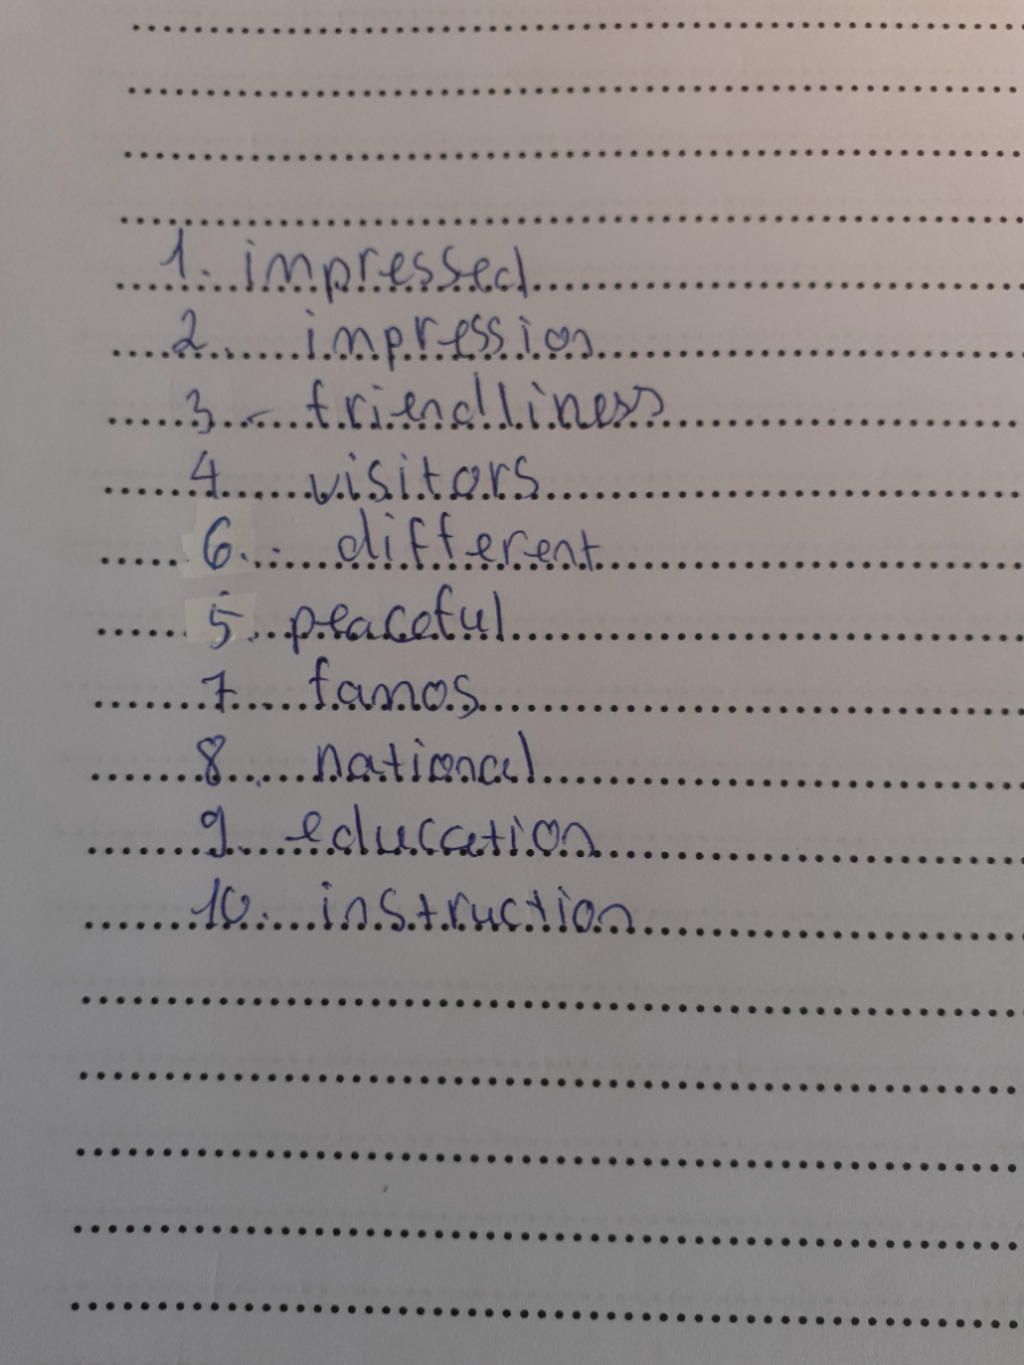 1. impressed
2. impression
3. friendliness
4. visitors
6. different
5. peaceful
7. famos
8. national
9. education
10. instruction